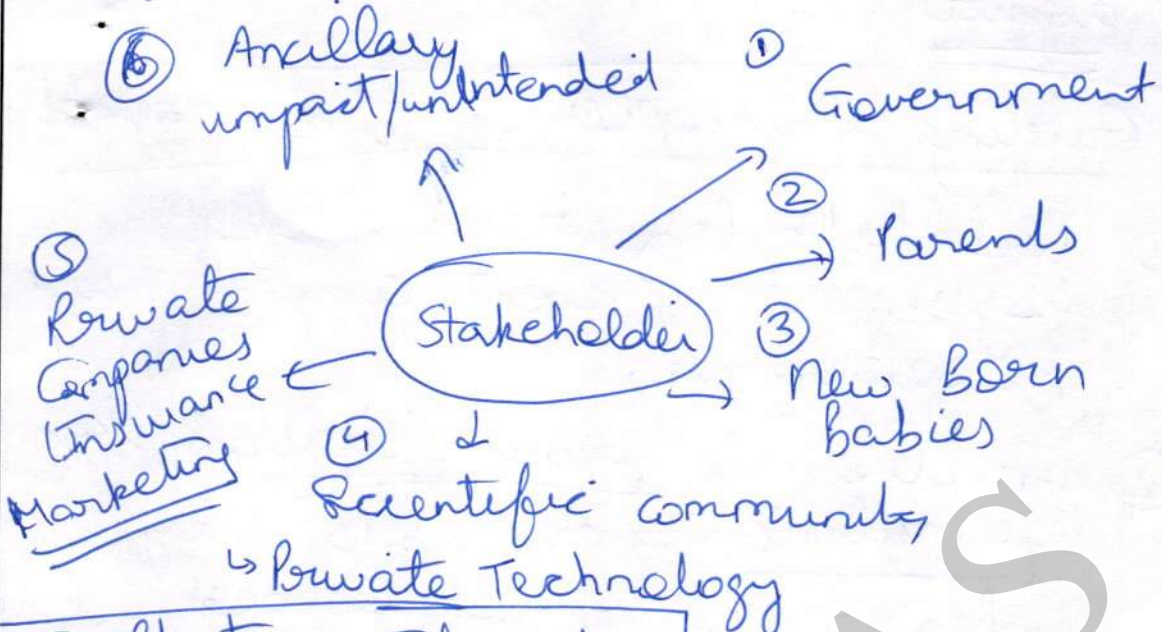 ⑥ Ancillary
impact/unintended
① Government
② Parents
Stakeholder
③ New Born
Babies
④ Scientific community
↳ Private Technology
⑤ Private
Companies
(Insurance
Marketing